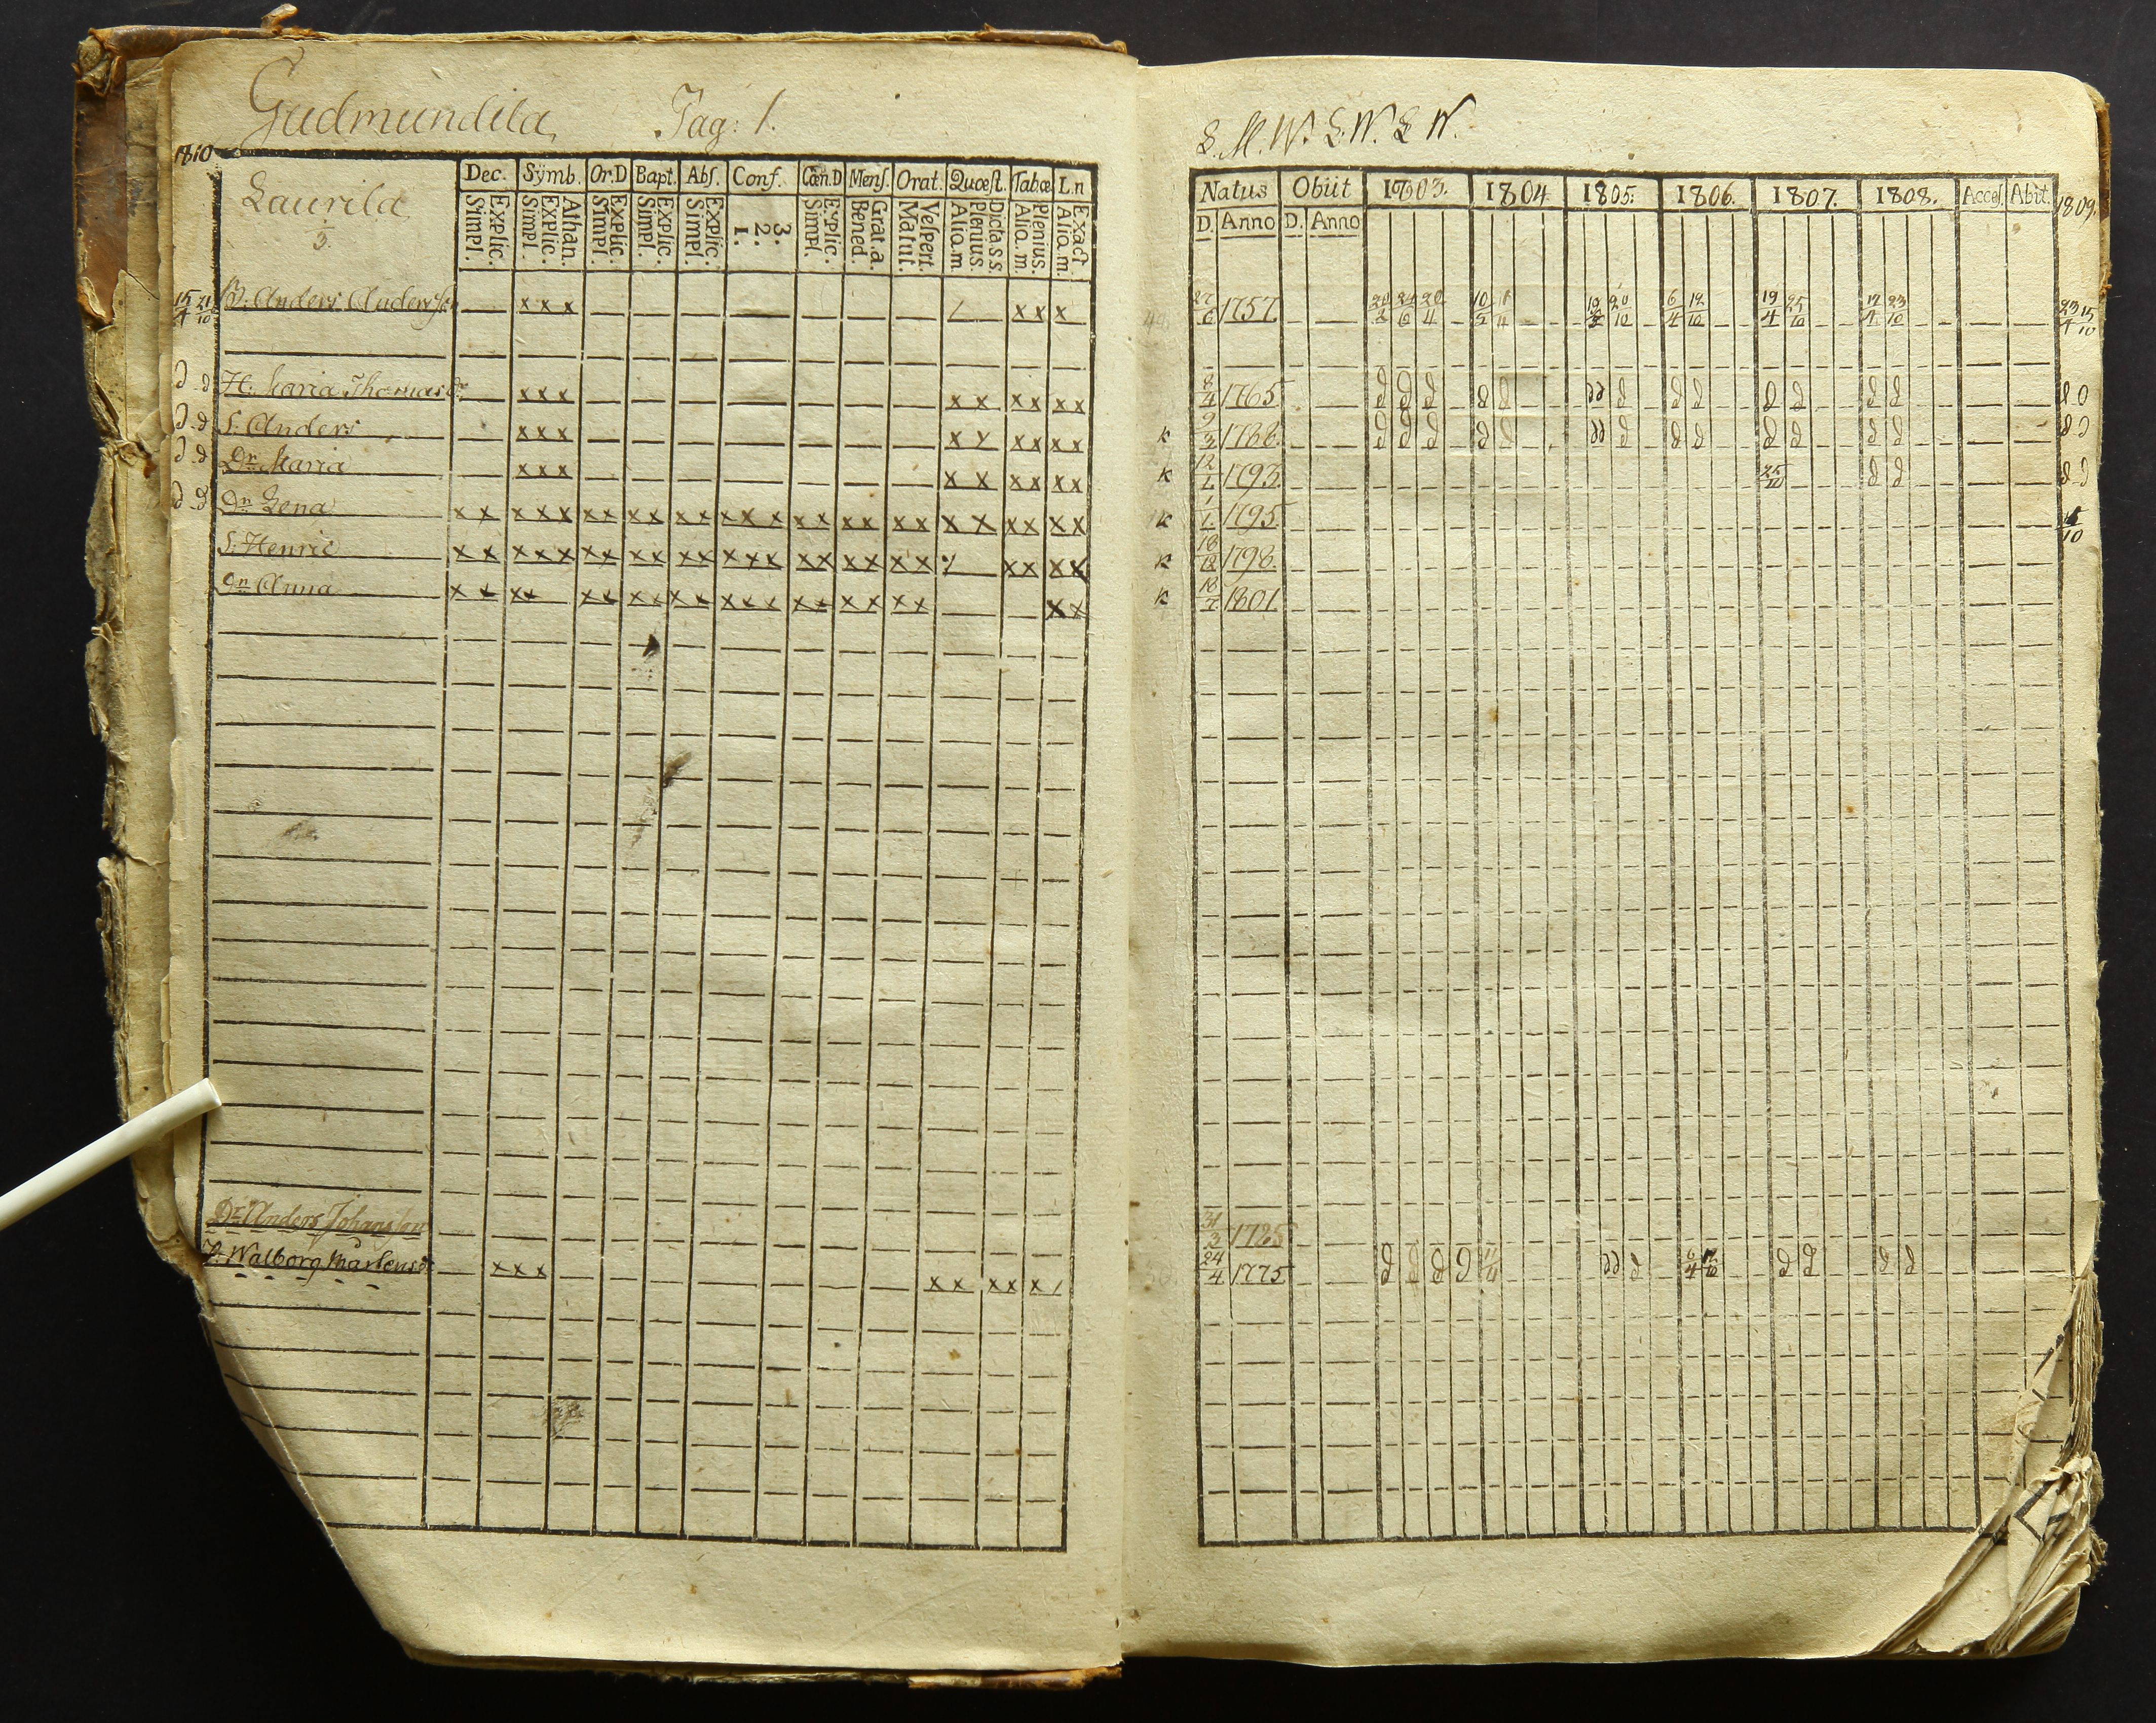 Gudmundila Pag: 1.
1810
Laurila
1/3
Dec. Symb. Or.D Bapt. Abſ. Conf. Cœn.D Menſ. Orat. Quœſt. Tabœ L.n
Explic. Simpl. Athan. Explic. Simpl. Explic. Simpl. Explic. Simpl. Explic. Simpl. 3. 2. 1. Explic. Simpl. Grat.a. Bened. Veſpert. Matut. Dicta.s.s. Plenius. Aliq.m. Plenius. Aliq.m. Exact Aliq.m.
15/4 21/10 B. Anders Andersſon x x x / x x x
d d H. Maria Thomasdr x x x x x x x x x
d d S. Anders x x x x x x x x x
d d Dr Maria x x x x x x x x x
d d Dr Lena x x x x x x x x x x x x x x x x x x x x x x x x x x
S. Henric x x x x x x x x x x x x x x x x x x x x x x x x
Dr Anna x x x x x x x x x x x x x x x x x x x x x
Dr Anders Johansſon
H. Walborg Martensdr x x x x x x x x /
L. M. W. L. W. L W.
Natus Obiit 1803. 1804 1805. 1806. 1807. 1808. Acceſ. Abit. 1809.
D. Anno D. Anno
27/6 1757. 10/5 20/10 6/4 12/10 19/4 25/10 17/4 23/10 23/4 15/10
8/4 1765 d d d d d d d d d d d d d d d d
k 9/3 1788. d d d d d d d d d d d d d d d d
k 12/1 1793 25/10 d d d d
k 1/1 1795 15/10
k 18/12 1798.
k 18/7 1801
31/3 1785
24/4 1775 d d d d 11/11 d d d 6/4 12/10 d d d d